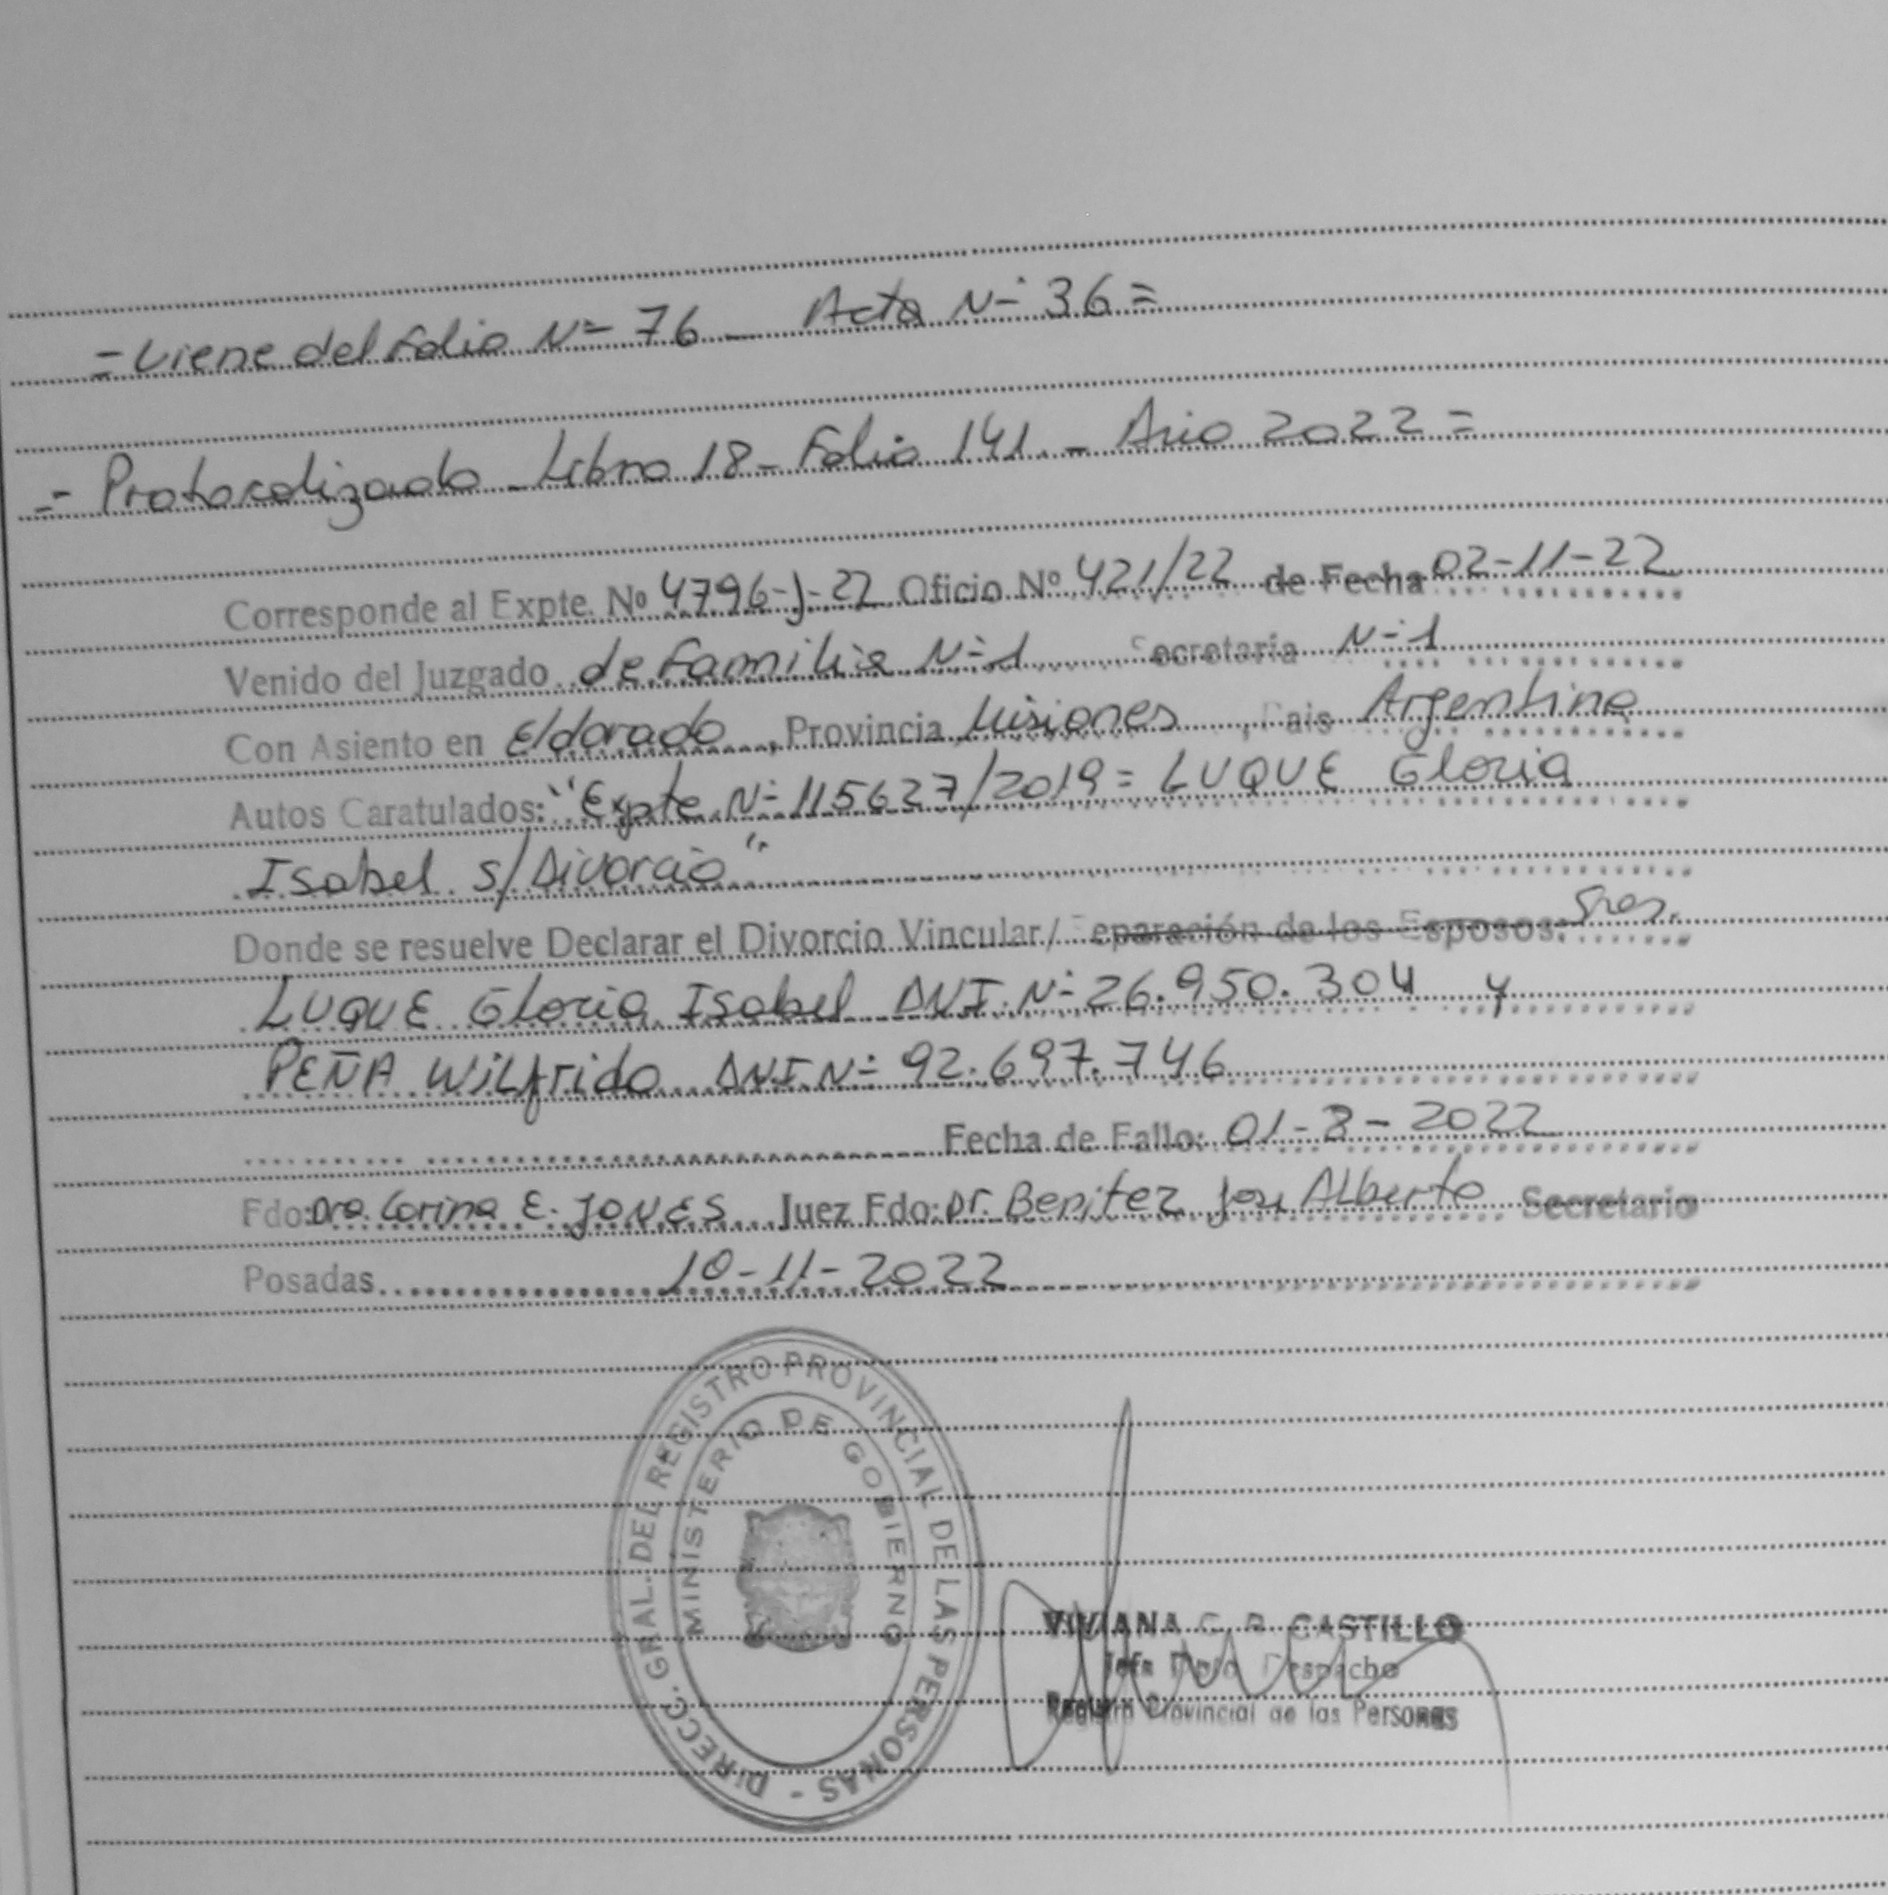 = Viene del Folio Nº 76 - Acta Nº 36 =
= Protocolizado - Libro 18 - Folio 141. - Año 2022 =
Corresponde al Expte. Nº 4796-J-22 Oficio Nº 421/22 de Fecha 02-11-22
Venido del Juzgado de Familia Nº 1 Secretaria Nº 1
Con Asiento en Eldorado, Provincia Misiones, Pais Argentina
Autos Caratulados: "Expte Nº 115627/2019 = LUQUE Gloria
Isabel s/Divorcio"
Donde se resuelve Declarar el Divorcio Vincular/ Separación de los Esposos: Sres.
LUQUE Gloria Isabel DNI. Nº 26.950.304 y
PEÑA Wilfrido DNI Nº 92.697.746
Fecha de Fallo: 01-8-2022
Fdo: Dra. Corina E. JONES Juez Fdo: Dr. Benitez Jose Alberto Secretario
Posadas 10-11-2022
DIRECC. GRAL. DEL REGISTRO PROVINCIAL DE LAS PERSONAS -
MINISTERIO DE GOBIERNO
VIVIANA CASTILLO
Jefa Dpto Despacho
Registro Provincial de las Personas